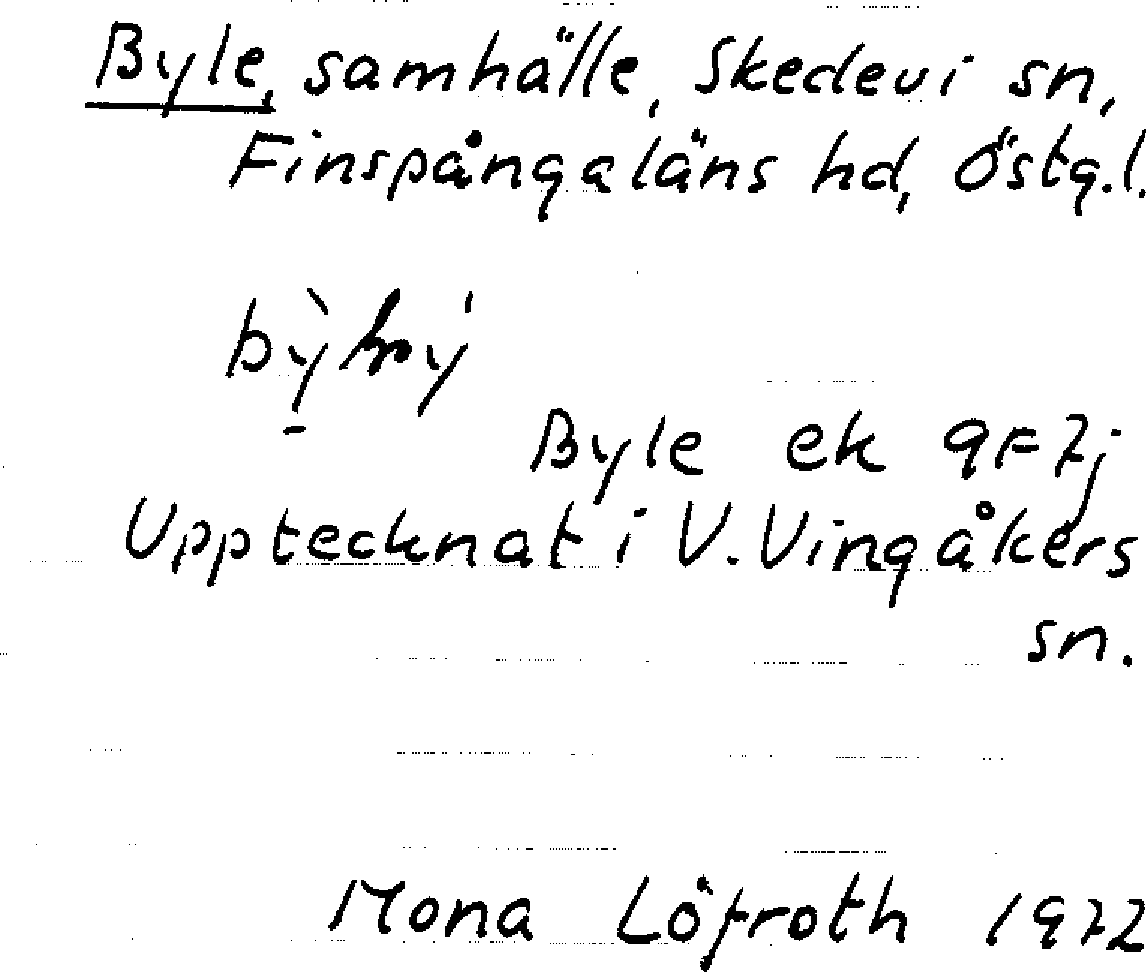 Byle, samhälle, Skedevi sn,
Finspångaläns hd, Östg.l.
Byle ek 9F7j
Upptecknat i V. Vingåkers
sn.
Mona Löfroth 1972